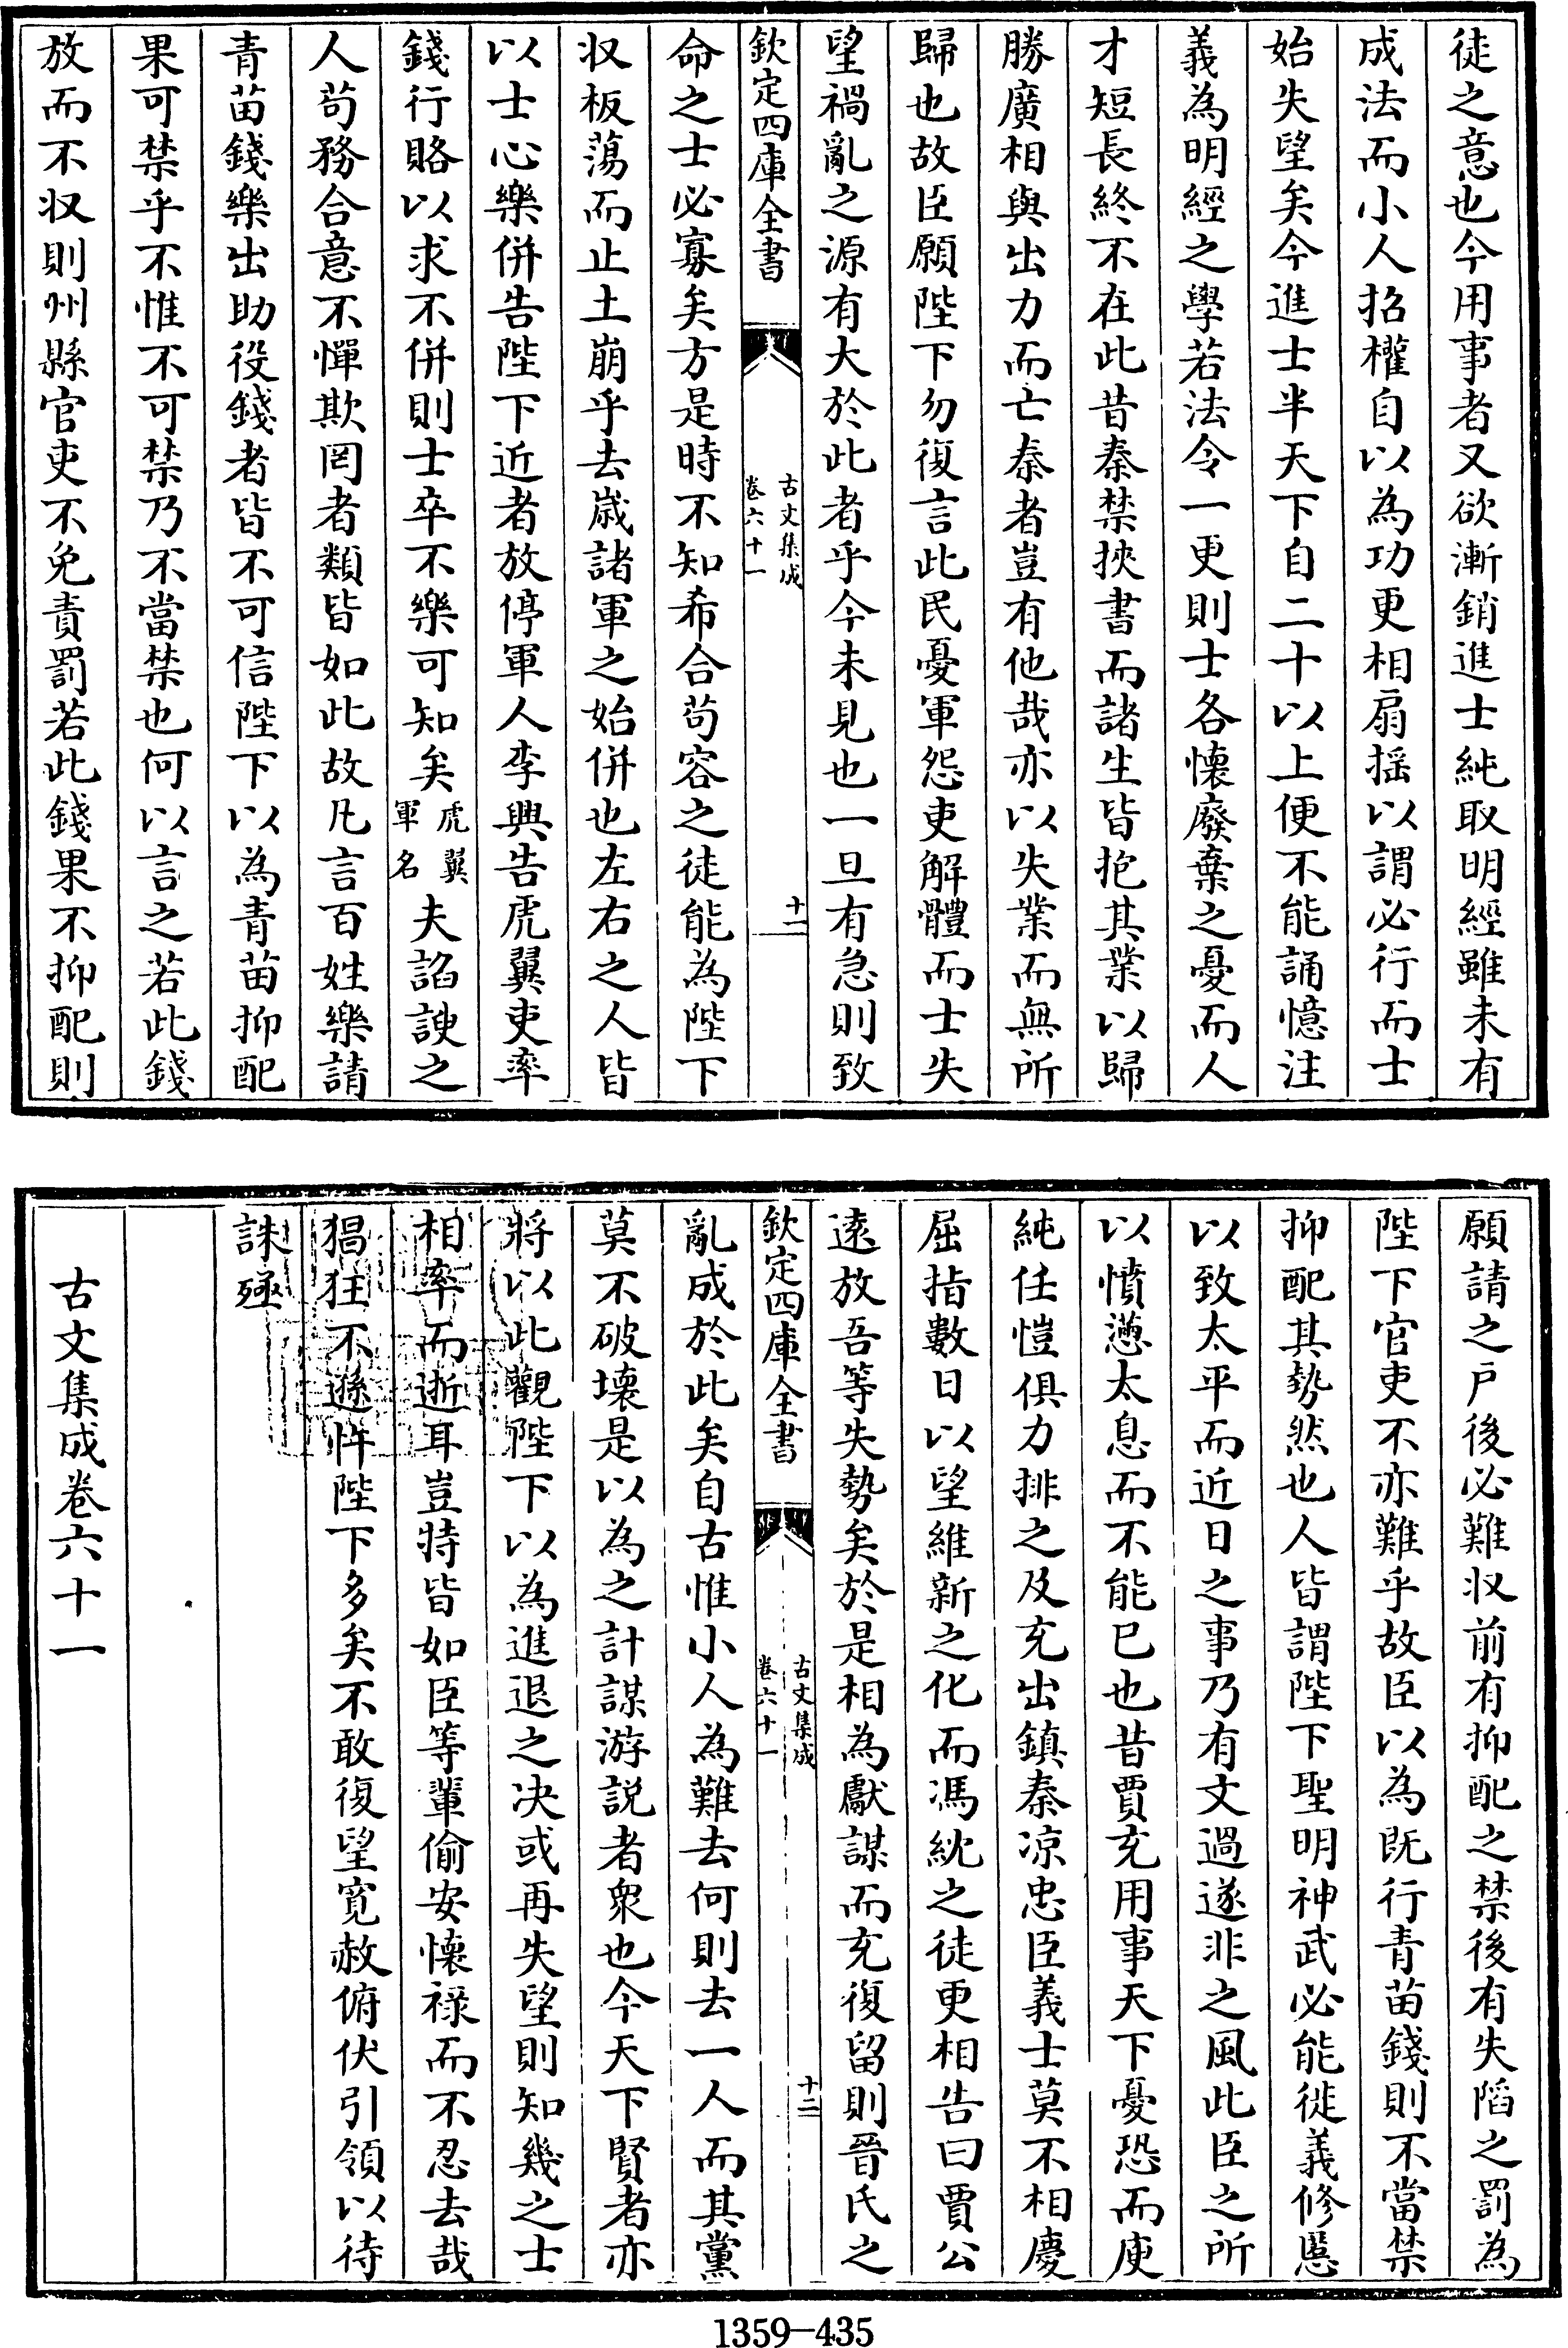 徒之意也今用事者又欲漸銷進士純取明經雖未有
成法而小人招權自以為功更相扇搖以謂必行而士
始失望矣今進士半天下自二十以上便不能誦憶注
義為明經之學若法令一更則士各懷廢棄之憂而人
才短長終不在此昔秦禁挾書而諸生皆抱其業以歸
勝廣相與出力而亡秦者豈有他哉亦以失業而無所
歸也故臣願陛下勿復言此民憂軍怨吏解體而士失
望禍亂之源有大於此者乎今未見也一旦有急則致
欽定四庫全書
古文集成
卷六十一
十一
命之士必寡矣方是時不知希合苟容之徒能為陛下
収板蕩而止土崩乎去歳諸軍之始併也左右之人皆
以士心樂併告陛下近者放停軍人李興告虎翼吏率
錢行賂以求不併則士卒不樂可知矣虎翼軍名夫諂諛之
人苟務合意不憚欺罔者類皆如此故凡言百姓樂請
青苗錢樂出助役錢者皆不可信陛下以為青苗抑配
果可禁乎不惟不可禁乃不當禁也何以言之若此錢
放而不収則州縣官吏不免責罰若此錢果不抑配則
願請之戸後必難収前有抑配之禁後有失䧟之罰為
陛下官吏不亦難乎故臣以為既行青苗錢則不當禁
抑配其勢然也人皆謂陛下聖明神武必能徙義修慝
以致太平而近日之事乃有文過遂非之風此臣之所
以憤懣太息而不能已也昔賈充用事天下憂恐而庾
純任愷倶力排之及充出鎮秦凉忠臣義士莫不相慶
屈指數日以望維新之化而馮紞之徒更相告曰賈公
逺放吾等失勢矣於是相為獻謀而充復留則晉氏之
欽定四庫全書
古文集成
卷六十一
十二
亂成於此矣自古惟小人為難去何則去一人而其黨
莫不破壞是以為之計謀游説者衆也今天下賢者亦
將以此觀陛下以為進退之决或再失望則知幾之士
相率而逝耳豈特皆如臣等輩偷安懷禄而不忍去哉
猖狂不遜忤陛下多矣不敢復望寛赦俯伏引領以待
誅殛
古文集成卷六十一
1359-435